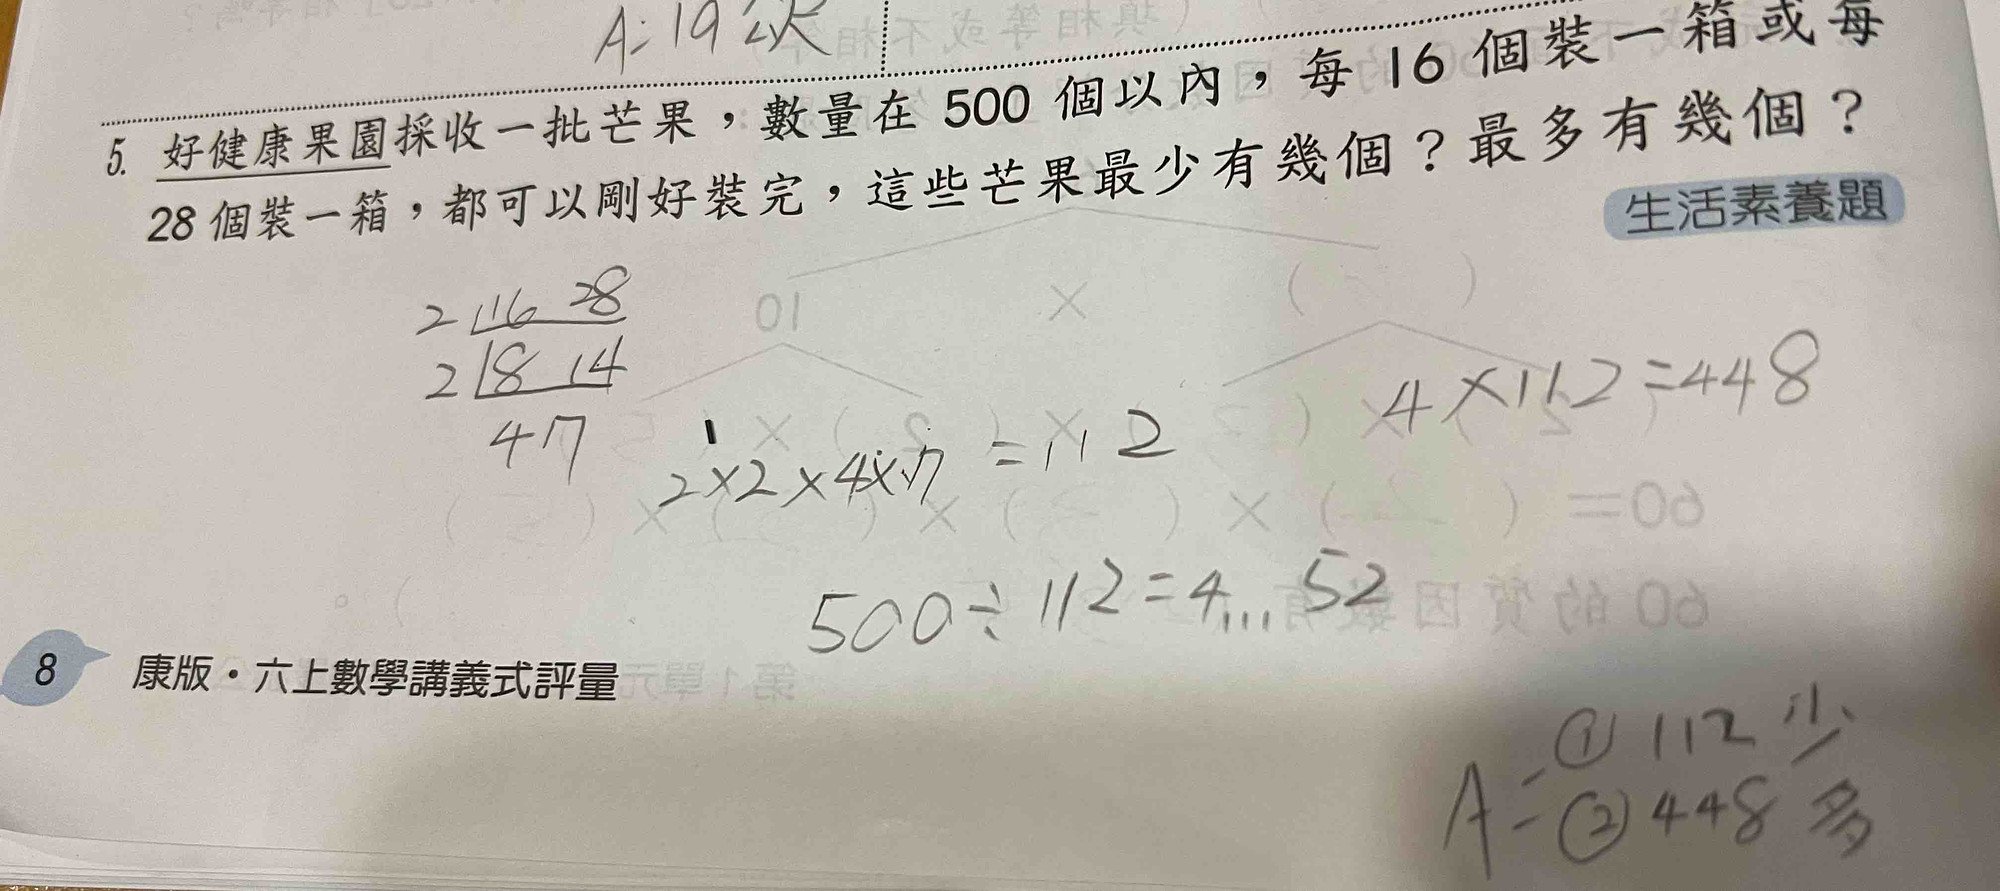 A:19次
5. 好健康果園採收一批芒果，數量在 500 個以內，每 16 個裝一箱或每
28 個裝一箱，都可以剛好裝完，這些芒果最少有幾個？最多有幾個？
生活素養題
2 16 28
2 8 14
4 7
2×2×4×7=112
4×112=448
500÷112=4...52
8 康版・六上數學講義式評量
A=①112 少
②448 多